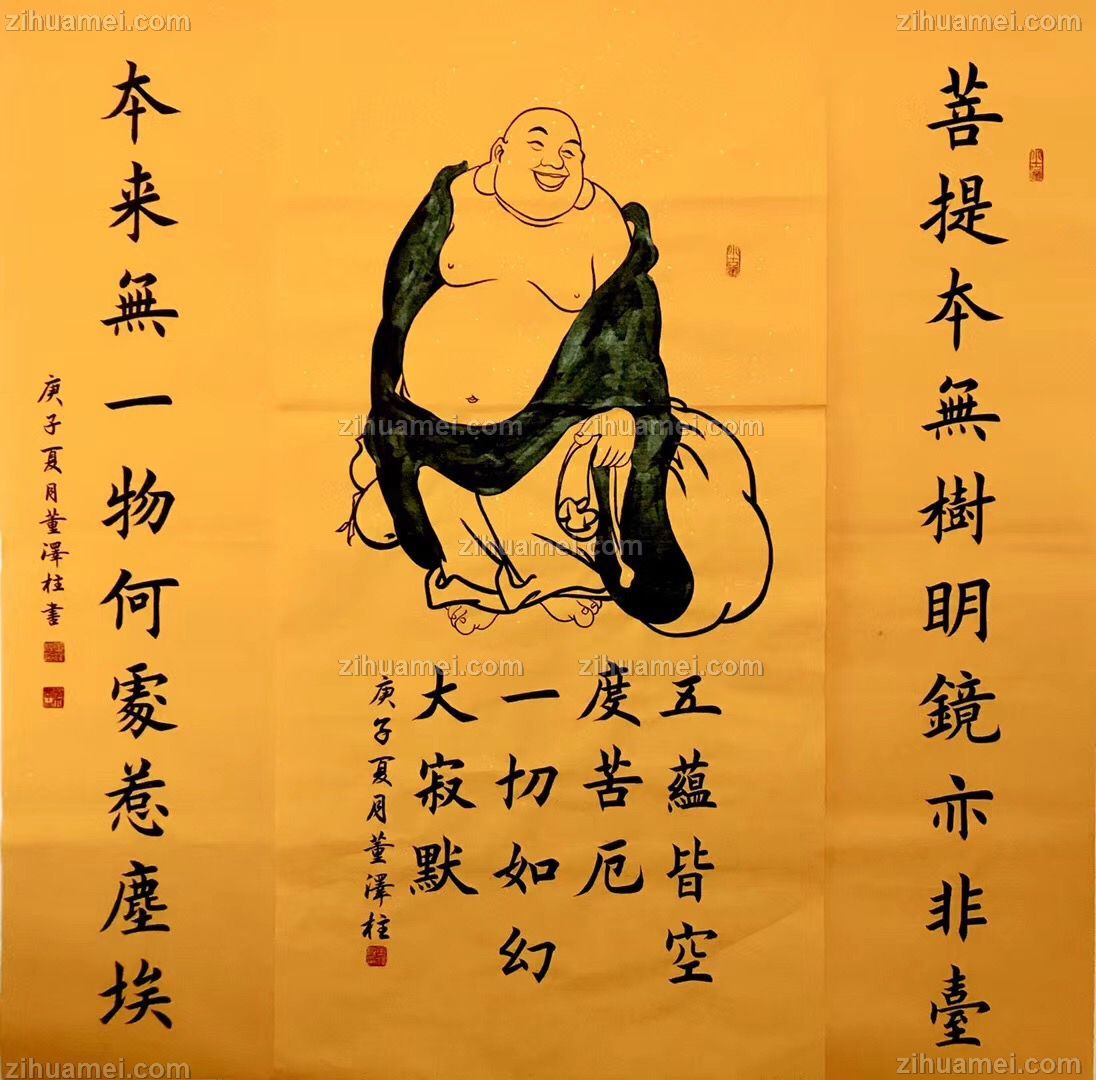 zihuamei.com
zihuamei.com
菩提本無樹明鏡亦非臺
zihuamei.com
zihuamei.com
zihuamei.com
zihuamei.com
zihuamei.com
五蘊皆空
度苦厄
一切如幻
大寂默
庚子夏月董澤柱
本来無一物何處惹塵埃
庚子夏月董澤柱書
zihuamei.com
zihuamei.com